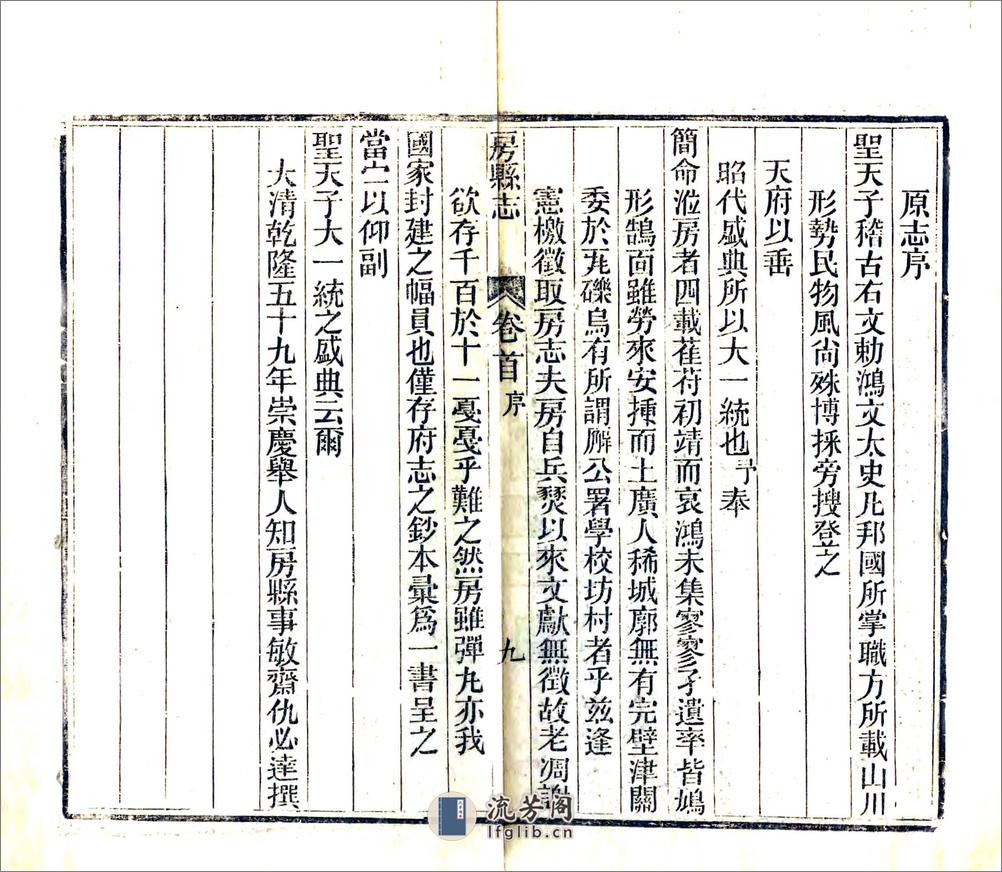 原志序
聖天子稽古右文勅鴻文太史凡邦國所掌職方所載山川
形勢民物風尚殊博採旁搜登之
天府以垂
昭代盛典所以大一統也予奉
簡命涖房者四載萑苻初靖而哀鴻未集寥寥孑遺率皆鳩
形鵠面雖勞來安揰而土廣人稀城廓無有完壁津關
委於瓦礫烏有所謂廨公署學校坊村者乎兹逢
憲檄徵取房志夫房自兵燹以來文獻無徵故老凋謝
房縣志
卷首
序
九
欲存千百於十一戞戞乎難之然房雖彈丸亦我
國家封建之幅員也僅存府志之鈔本彙爲一書呈之
當宁以仰副
聖天子大一統之盛典云爾
大清乾隆五十九年崇慶舉人知房縣事敏齋仇必達撰
流芳阁
lfglib.cn